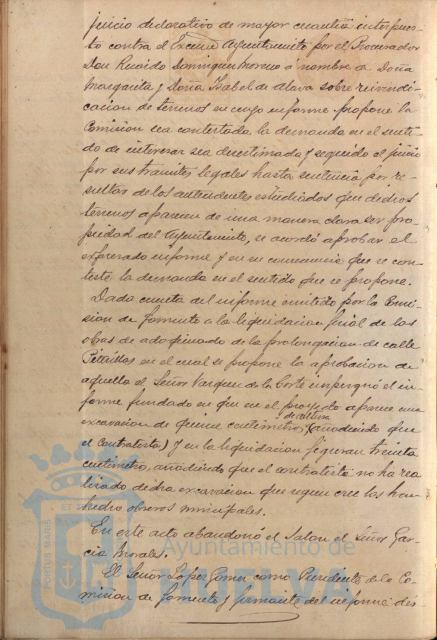 juicio declarativo de mayor cuantía interpues-
to contra el Excmo Ayuntamiento por el Procurador
Don Rucido Dominguez Moreno á nombre de Doña
Margarita y Doña Isabel de Alava sobre reivindi-
cacion de terrenos en cuyo informe propone la
Comision sea contestada la demanda en el senti-
do de interesar sea desestimada y seguido el juicio
por sus tramites legales hasta sentencia por re-
sultar de los antecedentes estudiados que dichos
terrenos aparecen de una manera clara ser pro-
piedad del Ayuntamiento, se acordó aprobar el
expresado informe y en su consecuencia que se con-
teste la demanda en el sentido que se propone.
Dada cuenta del informe emitido por la Comi-
sion de fomento a la liquidacion final de las
obras de adoquinado de la prolongacion de calle
en el cual se propone la aprobacion de
aquella el Señor Vazquez de la Corte impugnó el in-
forme fundado en que en el proyecto aparece una
excavacion de quince centimetros de altura (añadiendo que
el Contratista) y en la liquidacion figuran treinta
centimetros, añadiendo que el contratista no ha rea-
lizado dicha excavacion que segun cree las han
hecho obreros municipales.
En este acto abandonó el Salon el Señor Gar-
cia Morales.
El Señor Lopez Gomez como Presidente de la Co-
mision de fomento y firmante del informe dis-
PORTUS MARIS ET
Ayuntamiento de
HUELVA